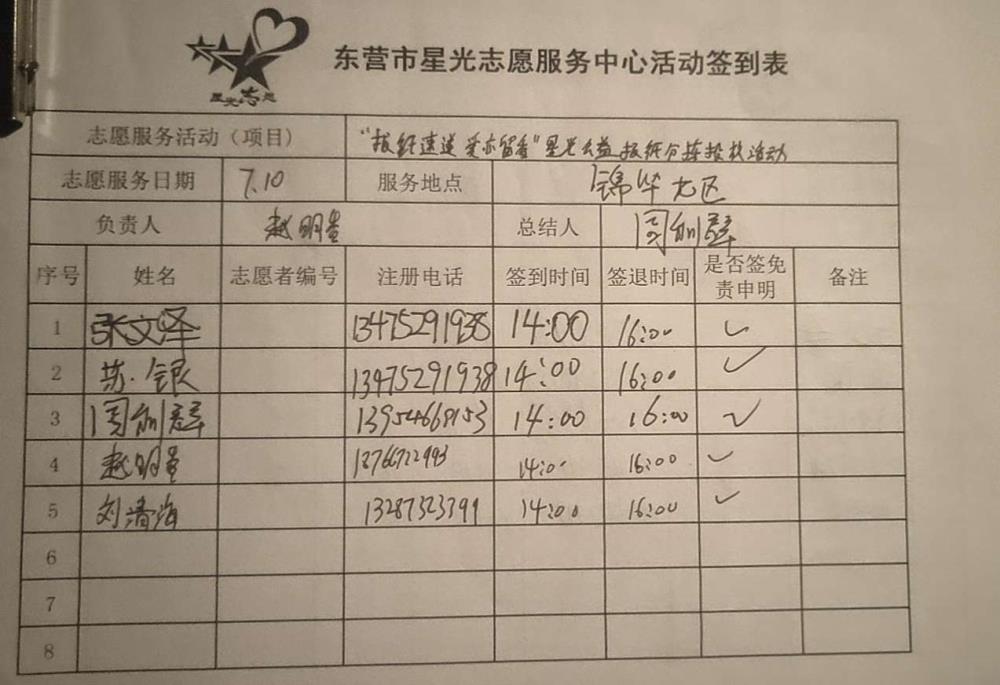 星光志愿
东营市星光志愿服务中心活动签到表
志愿服务活动（项目） “报纸速递 爱亦留香”星光公益报纸分拣投放活动
志愿服务日期 7.10 服务地点 锦华尤区
负责人 赵明 总结人 周利
序号 姓名 志愿者编号 注册电话 签到时间 签退时间 是否签免责申明 备注
1 张文泽 13475291938 14:00 16:00 ✓
2 苏银 13475291938 14:00 16:00 ✓
3 周利 13954668153 14:00 16:00 ✓
4 赵明 14:00 16:00 ✓
5 刘清海 13287323399 14:00 16:00 ✓
6
7
8